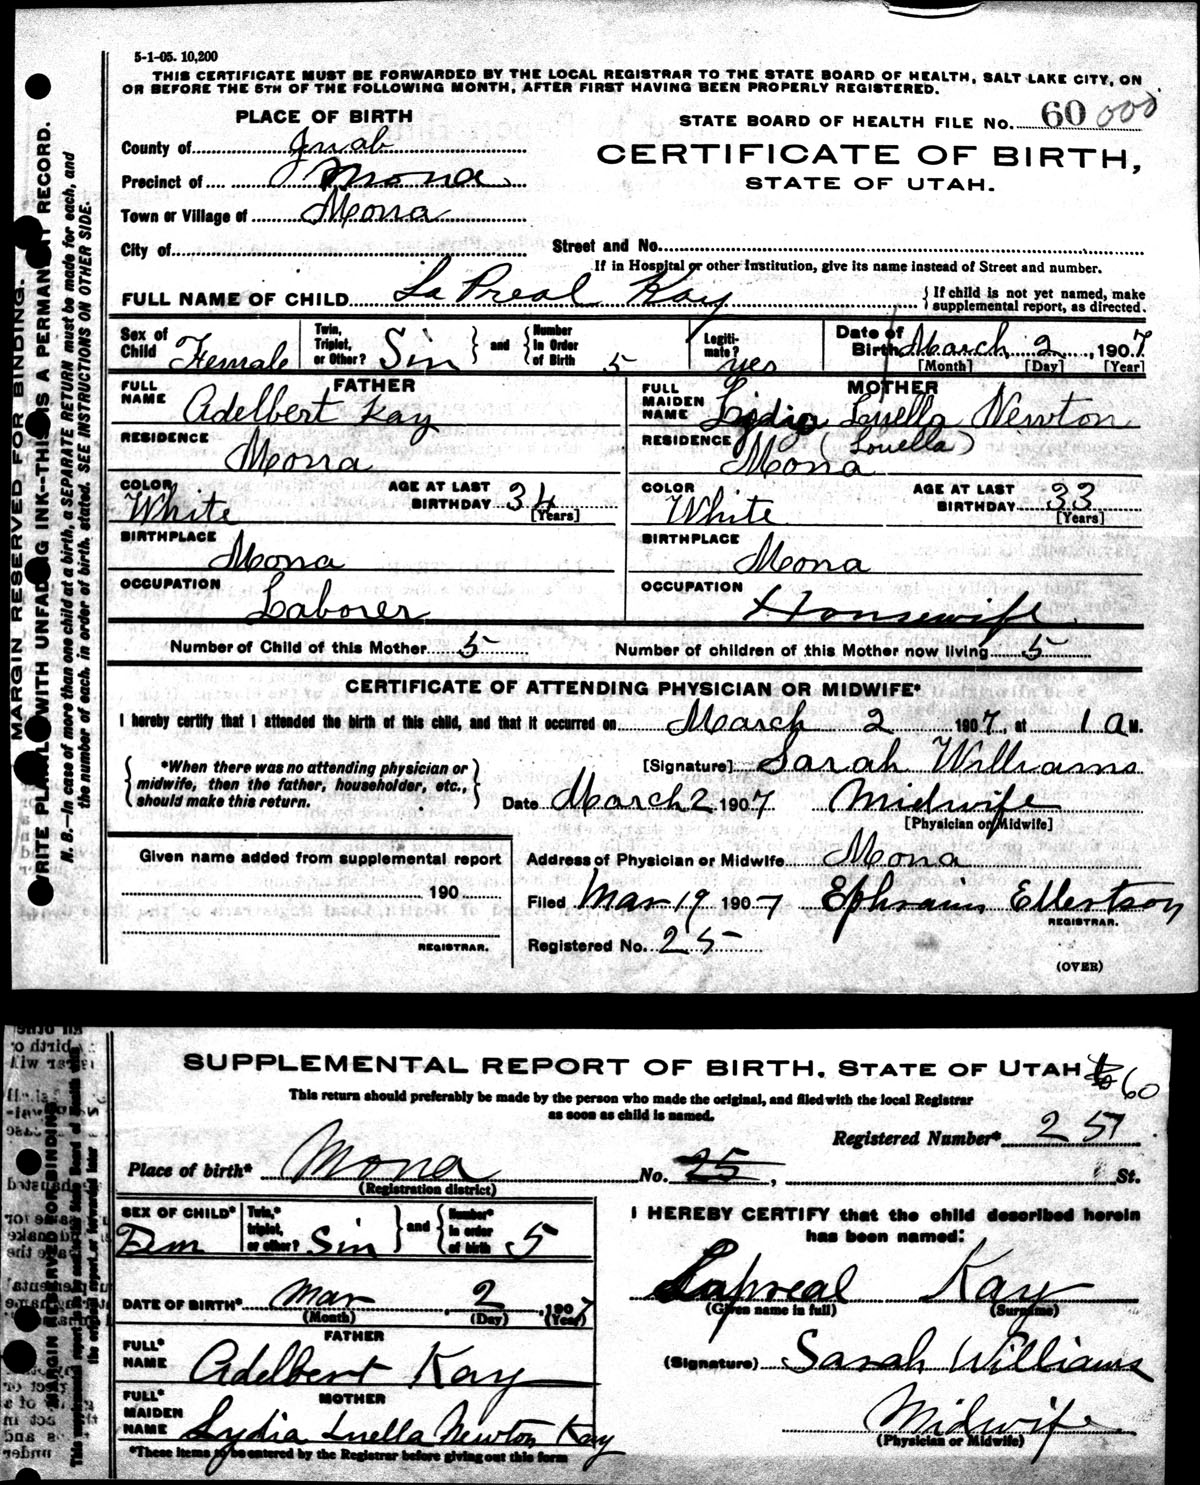 5-1-05. 10,200
THIS CERTIFICATE MUST BE FORWARDED BY THE LOCAL REGISTRAR TO THE STATE BOARD OF HEALTH, SALT LAKE CITY, ON
OR BEFORE THE 5TH OF THE FOLLOWING MONTH, AFTER FIRST HAVING BEEN PROPERLY REGISTERED.
PLACE OF BIRTH
STATE BOARD OF HEALTH FILE NO. 60 000
County of Juab
CERTIFICATE OF BIRTH,
Precinct of Mona
STATE OF UTAH.
Town or Village of Mona
City of
Street and No.
If in Hospital or other Institution, give its name instead of Street and number.
FULL NAME OF CHILD La Preal Kay
} If child is not yet named, make
supplemental report, as directed.
Sex of Child Female Twin, Triplet, or Other? Sin } and { Number In Order of Birth 5 Legiti-mate? yes Date of Birth March 2, 1907
[Month] [Day] [Year]
FATHER
MOTHER
FULL NAME Adelbert Kay
FULL MAIDEN NAME Lydia Luella Newton
(Louella)
RESIDENCE Mona
RESIDENCE Mona
COLOR White AGE AT LAST BIRTHDAY 34 [Years]
COLOR White AGE AT LAST BIRTHDAY 33 [Years]
BIRTHPLACE Mona
BIRTHPLACE Mona
OCCUPATION Laborer
OCCUPATION Housewife
Number of Child of this Mother 5 Number of children of this Mother now living 5
CERTIFICATE OF ATTENDING PHYSICIAN OR MIDWIFE*
I hereby certify that I attended the birth of this child, and that it occurred on March 2 1907, at 1 a M.
*When there was no attending physician or
midwife, then the father, householder, etc.,
should make this return.
[Signature] Sarah Williams
Date March 2 1907 Midwife
[Physician or Midwife]
Given name added from supplemental report
190
REGISTRAR.
Address of Physician or Midwife Mona
Filed Mar 19 1907 Ephraim Ellertson
REGISTRAR.
Registered No. 25
(OVER)
MARGIN RESERVED FOR BINDING.
WRITE PLAINLY WITH UNFADING INK--THIS IS A PERMANENT RECORD.
N. B.—In case of more than one child at a birth, a SEPARATE RETURN must be made for each, and
the number of each, in order of birth, stated. SEE INSTRUCTIONS ON OTHER SIDE.
SUPPLEMENTAL REPORT OF BIRTH, STATE OF UTAH
60
This return should preferably be made by the person who made the original, and filed with the local Registrar
as soon as child is named.
Registered Number* 25
Place of birth* Mona No. 25, St.
(Registration district)
SEX OF CHILD* Fem Twin,* triplet, or other? Sin } and { Number* in order of birth 5
I HEREBY CERTIFY that the child described herein
has been named:
DATE OF BIRTH* Mar 2, 1907
(Month) (Day) (Year)
Lapreal Kay
(Given name in full) (Surname)
FATHER
FULL* NAME Adelbert Kay
(Signature) Sarah Williams
MOTHER
FULL* MAIDEN NAME Lydia Luella Newton Kay
Midwife
(Physician or Midwife)
*These items to be entered by the Registrar before giving out this form
MARGIN RESERVED FOR BINDING